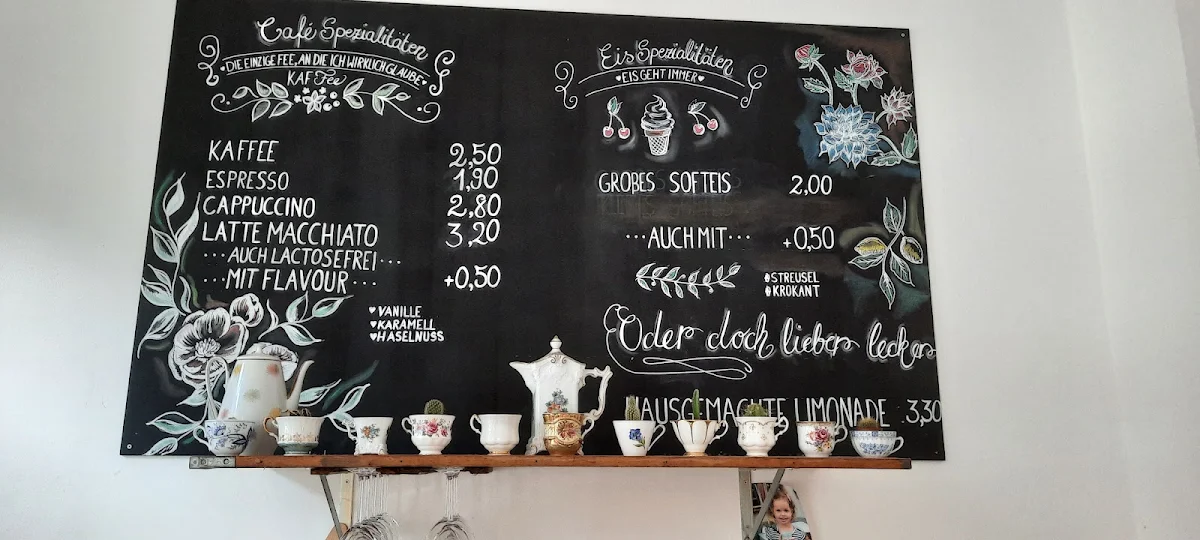 Café Spezialitäten
DIE EINZIGE FEE, AN DIE ICH WIRKLICH GLAUBE
KAFFee
KAFFEE 2,50
ESPRESSO 1,90
CAPPUCCINO 2,80
LATTE MACCHIATO 3,20
...AUCH LACTOSEFREI...
...MIT FLAVOUR... +0,50
♥VANILLE
♥KARAMELL
♥HASELNUSS
Eis Spezialitäten
♥EIS GEHT IMMER♥
GROßES SOFTEIS 2,00
...AUCH MIT... +0,50
STREUSEL
KROKANT
Oder doch lieber lecker
HAUSGEMACHTE LIMONADE 3,30